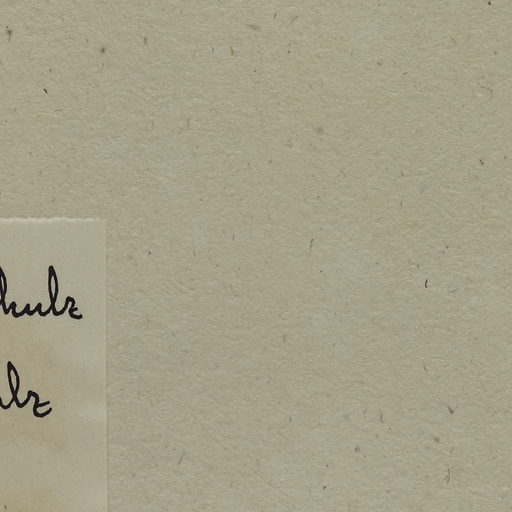 hulz
ulz